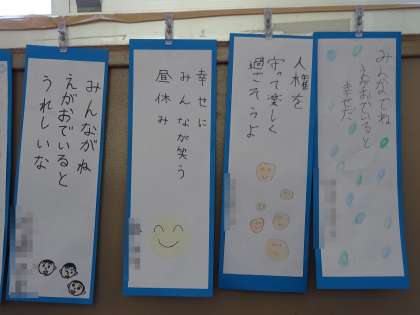 えがおでいると
幸せだ
人権を
守って楽しく
過ごそうよ
幸せに
みんなが笑う
昼休み
みんながね
えがおでいると
うれしいな